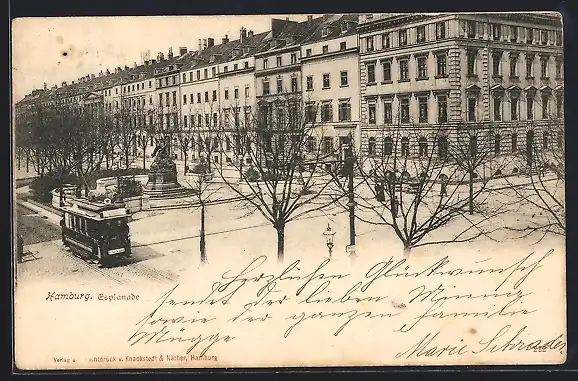 Hamburg. Esplanade
Herzlichen Glückwunsch
sendet der lieben Minna
sowie der ganzen Familie
Mügge
Marie Schrader
Verlag u. Lichtdruck v. Knackstedt & Näther, Hamburg